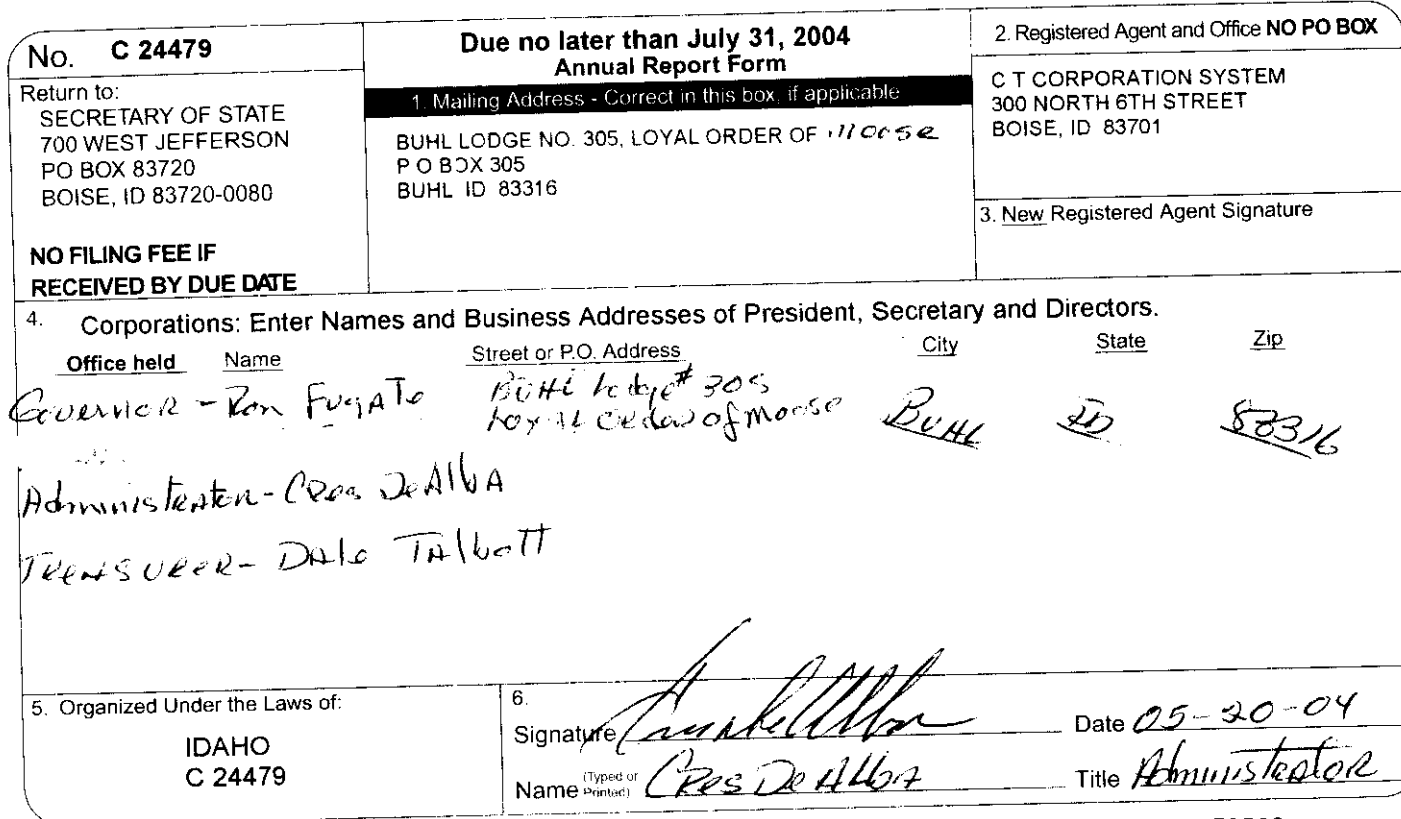 No. C 24479
Return to:
SECRETARY OF STATE
700 WEST JEFFERSON
PO BOX 83720
BOISE, ID 83720-0080
NO FILING FEE IF
RECEIVED BY DUE DATE
Due no later than July 31, 2004
Annual Report Form
1. Mailing Address - Correct in this box, if applicable
BUHL LODGE NO. 305, LOYAL ORDER OF moose
P O BOX 305
BUHL ID 83316
2. Registered Agent and Office NO PO BOX
C T CORPORATION SYSTEM
300 NORTH 6TH STREET
BOISE, ID 83701
3. New Registered Agent Signature
4. Corporations: Enter Names and Business Addresses of President, Secretary and Directors.
Office held Name Street or P.O. Address City State Zip
Governor - Ron Fugate BUHL Lodge # 305
Loyal Order of Moose BUHL ID 83316
Administrator - Cres DeAlbA
Treasurer - Dale Talbott
5. Organized Under the Laws of:
IDAHO
C 24479
6.
Signature Date 05-20-04
Name (Typed or Printed) Cres DeAlba Title Administrator